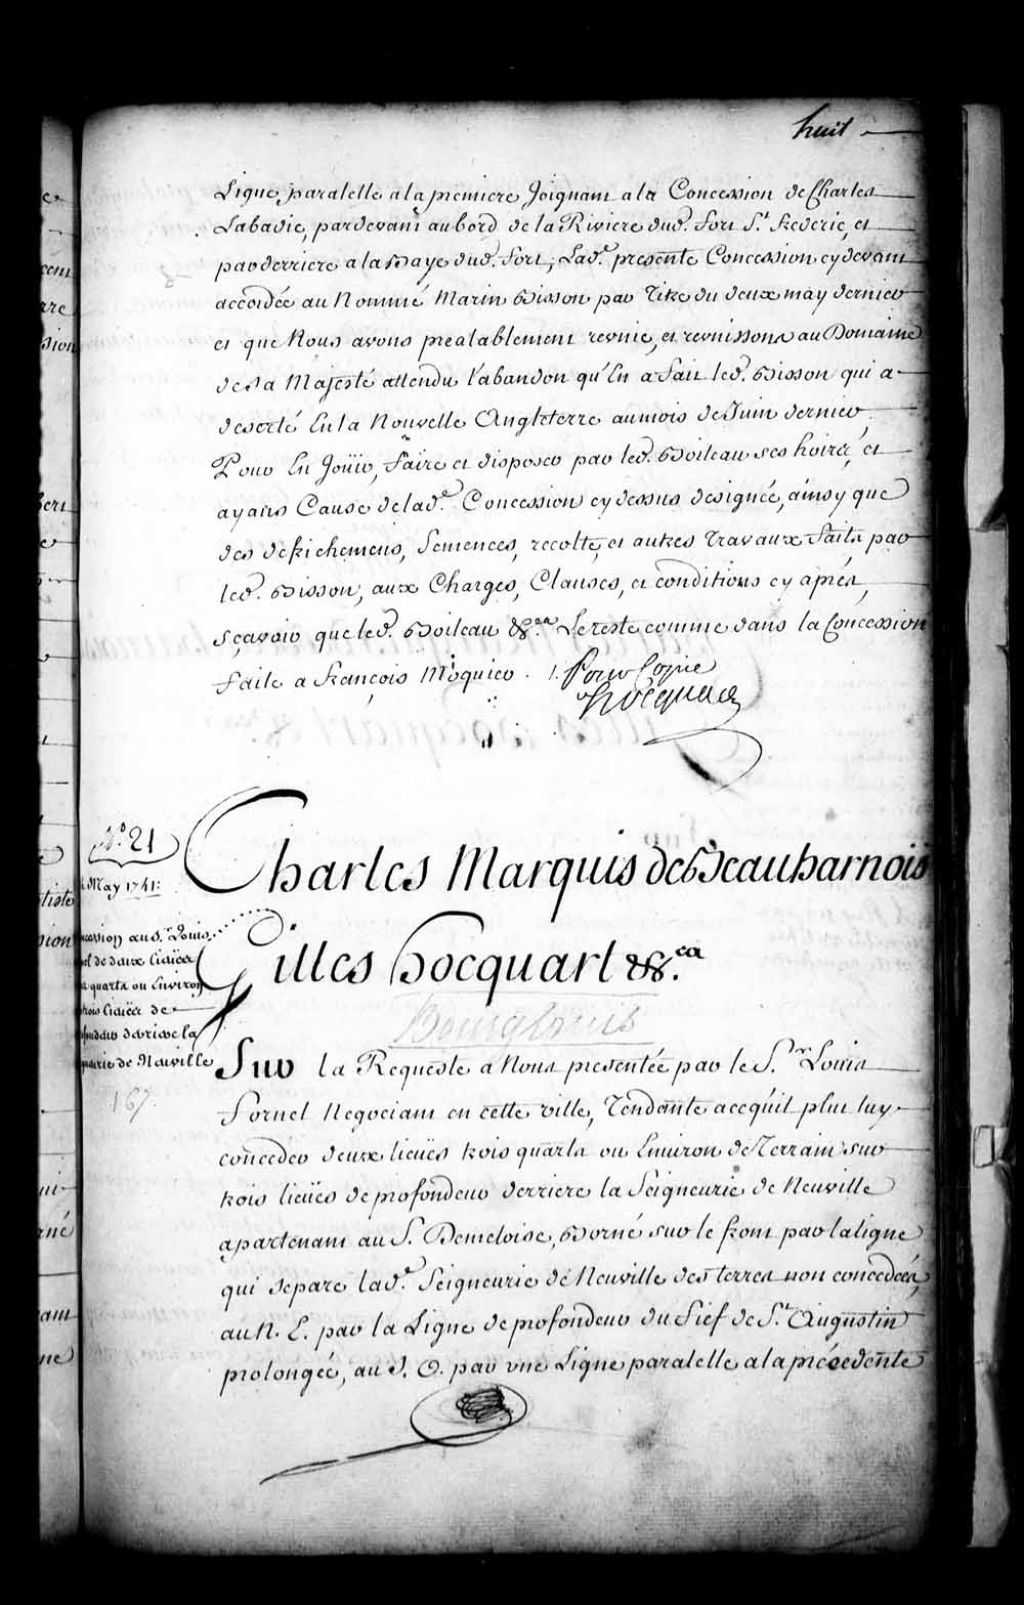 huit
Ligne, paralelle a la premiere Joignant a la Concession de Charles
Labadie, pardevant au bord de la Riviere dud. fort S.t frederic, et
par derriere a la Baye dud. fort; Lad.e presente Concession cy devant
accordée au Nommé Marin Bisson par Titre du deux may dernier
et que Nous avons prealablement reunie, et reunissons au Domaine
de sa Majesté attendu l'abandon qu'En a fait led. Bisson qui a
deserté En la Nouvelle Angleterre au mois de Juin dernier
Pour En Joüir, faire et disposer par led. Boileau ses hoirs, et
ayans Cause de lad.e Concession cy dessus designée, ainsy que
des defrichemens, Semences, recolte, et autres Travaux faits par
led. Bisson, aux Charges, Clauses, et conditions cy aprés,
sçavoir que led. Boileau &.ca Le reste comme dans la Concession
faite a françois Moquier . /. Pour Copie
Hocquart
N.o 21
May 1741:
Charles Marquis de Beauharnois
au S.r Louis
de deux Lieües
quarts ou Environ
trois Lieües de
derriere la
de Neuville
167
Gilles Hocquart &.ca
Bourglouis
Sur la Requeste a Nous presentée par le S.r Louis
fornel Negociant en cette ville, Tendante a ce qu'il plut luy
conceder deux lieües trois quarts ou Environ de Terrain sur
trois lieües de profondeur derriere la Seigneurie de Neuville
apartenant au S. Demeloise, Borné sur le front par la ligne
qui separe lad.e Seigneurie de Neuville des terres non concedées,
au N. E. par la Ligne de profondeur du fief de S.t Augustin
prolongée, au S. O. par une Ligne paralelle a la précedente